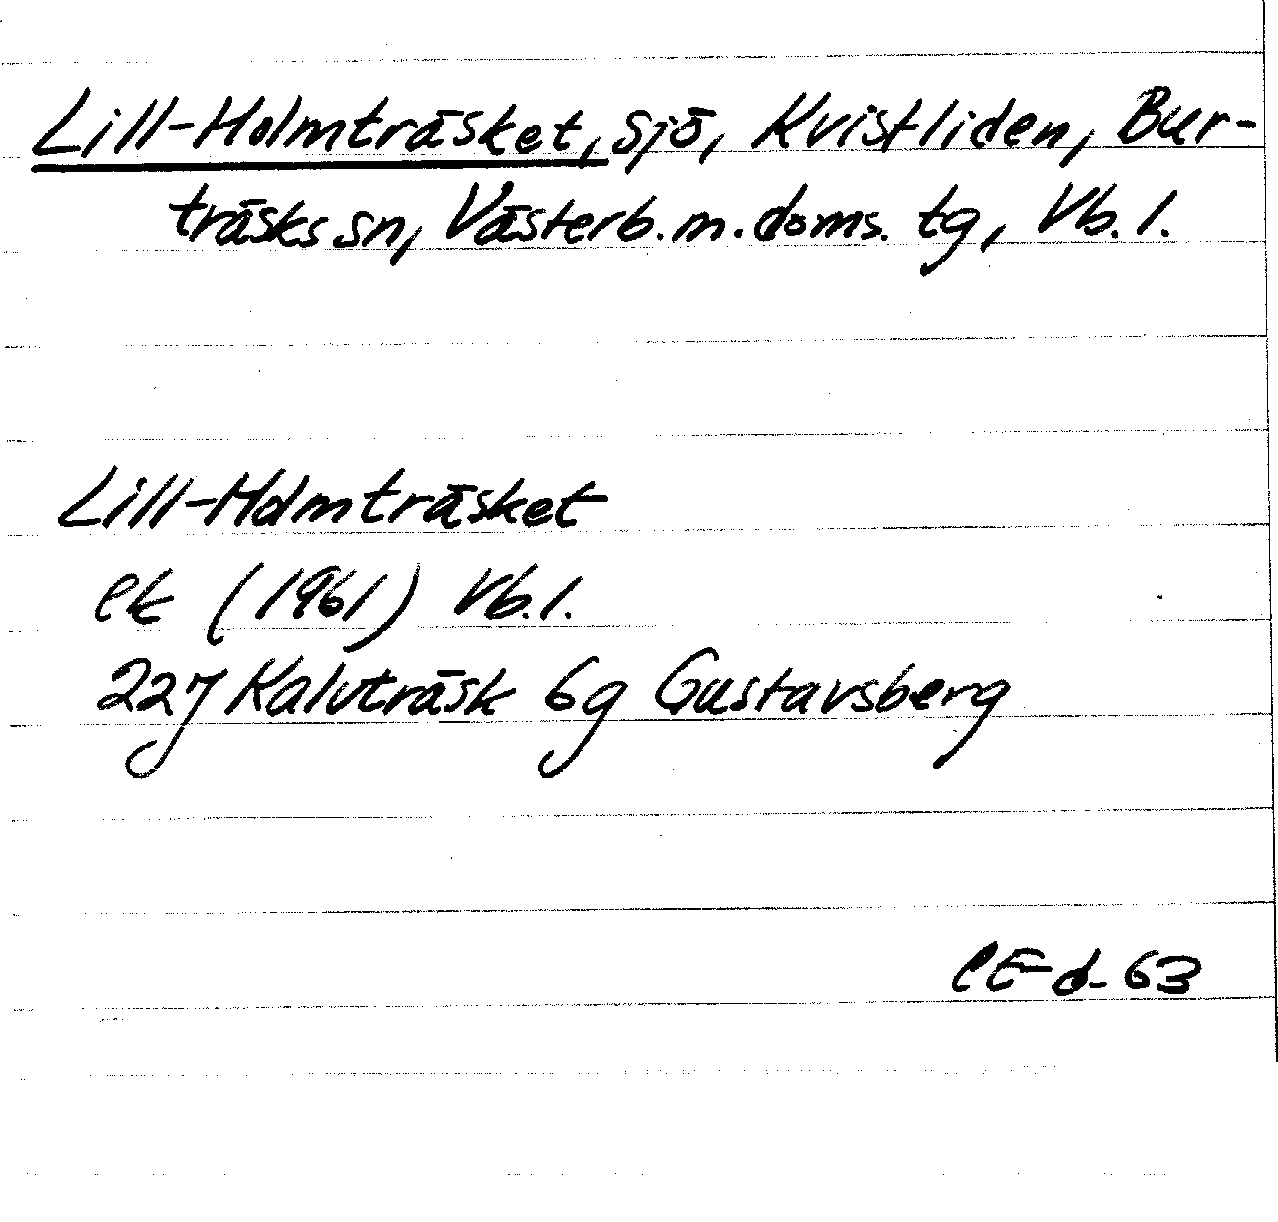 Lill-Holmträsket, sjö, Kvistliden, Bur-
träsks sn, Västerb. m. doms. tg, Vb. l.
Lill-Holmträsket
ek (1961) Vb. l.
22J Kalvträsk 6g Gustavsberg
CE-d- 63